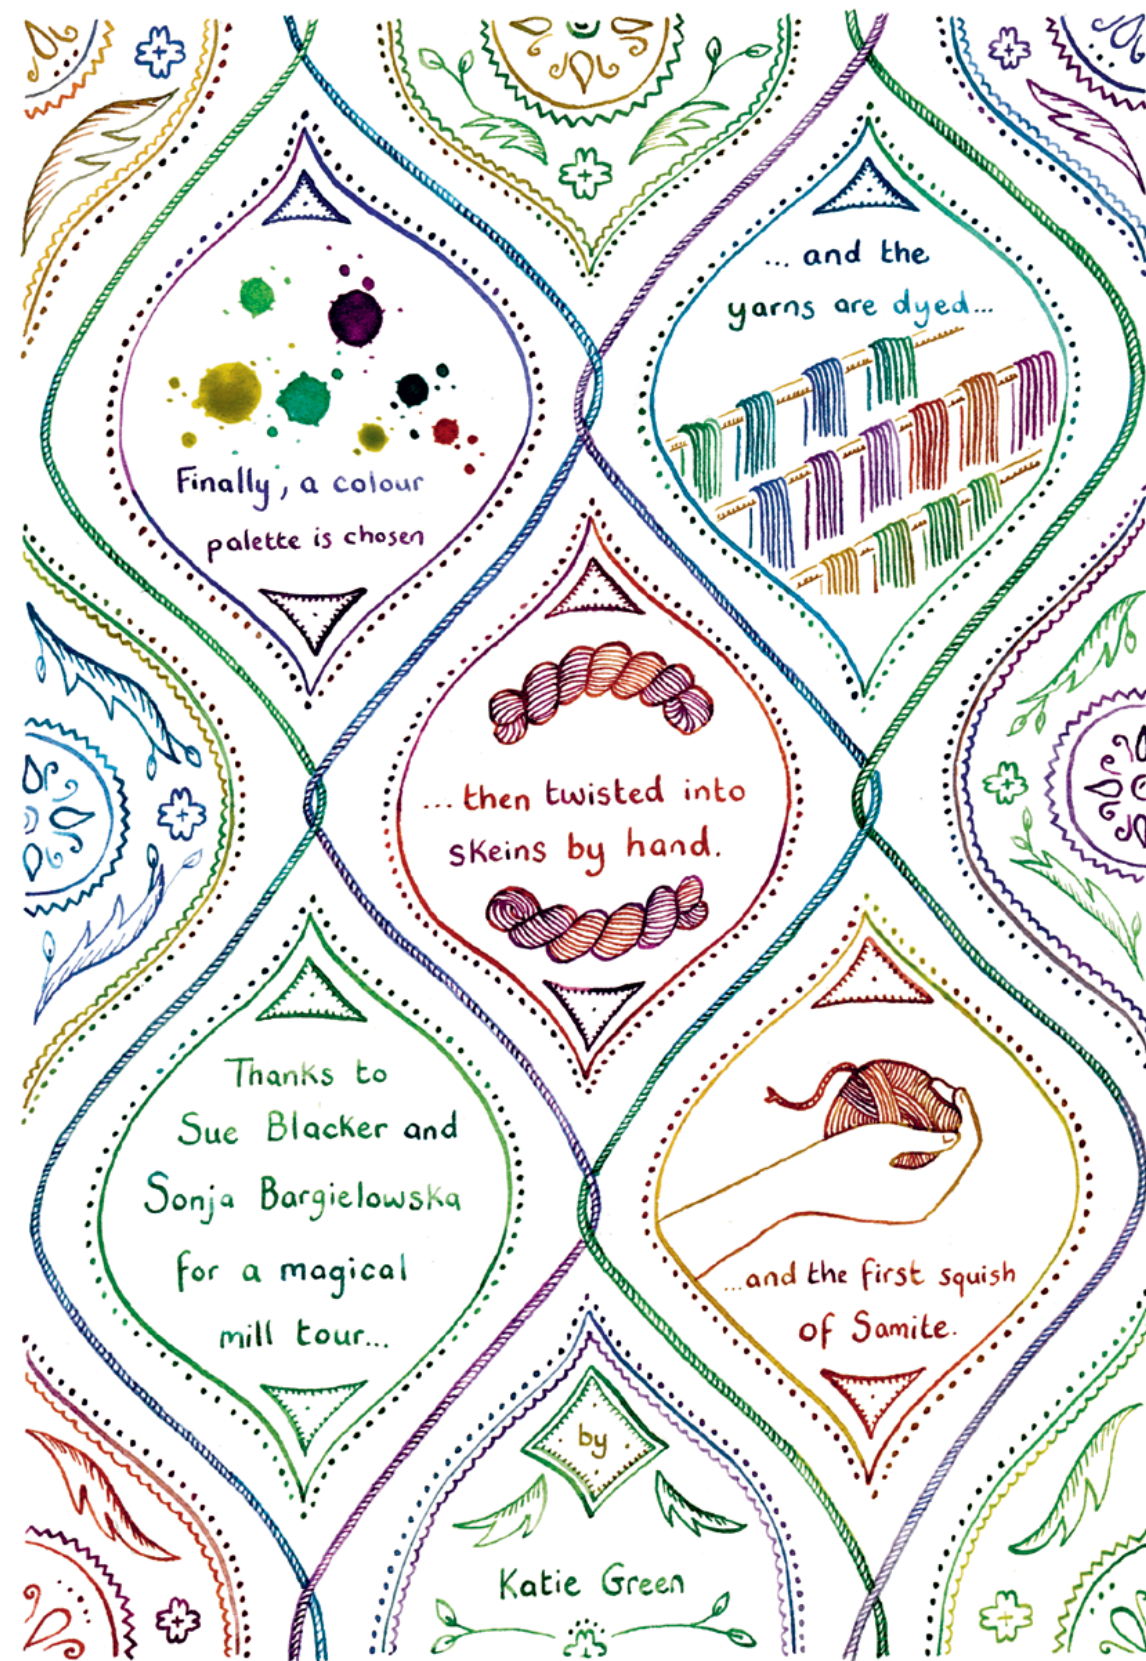 Finally, a colour
palette is chosen
... and the
yarns are dyed...
... then twisted into
skeins by hand.
...and the first squish
of Samite.
Thanks to
Sue Blacker and
Sonja Bargielowska
for a magical
mill tour...
by
Katie Green